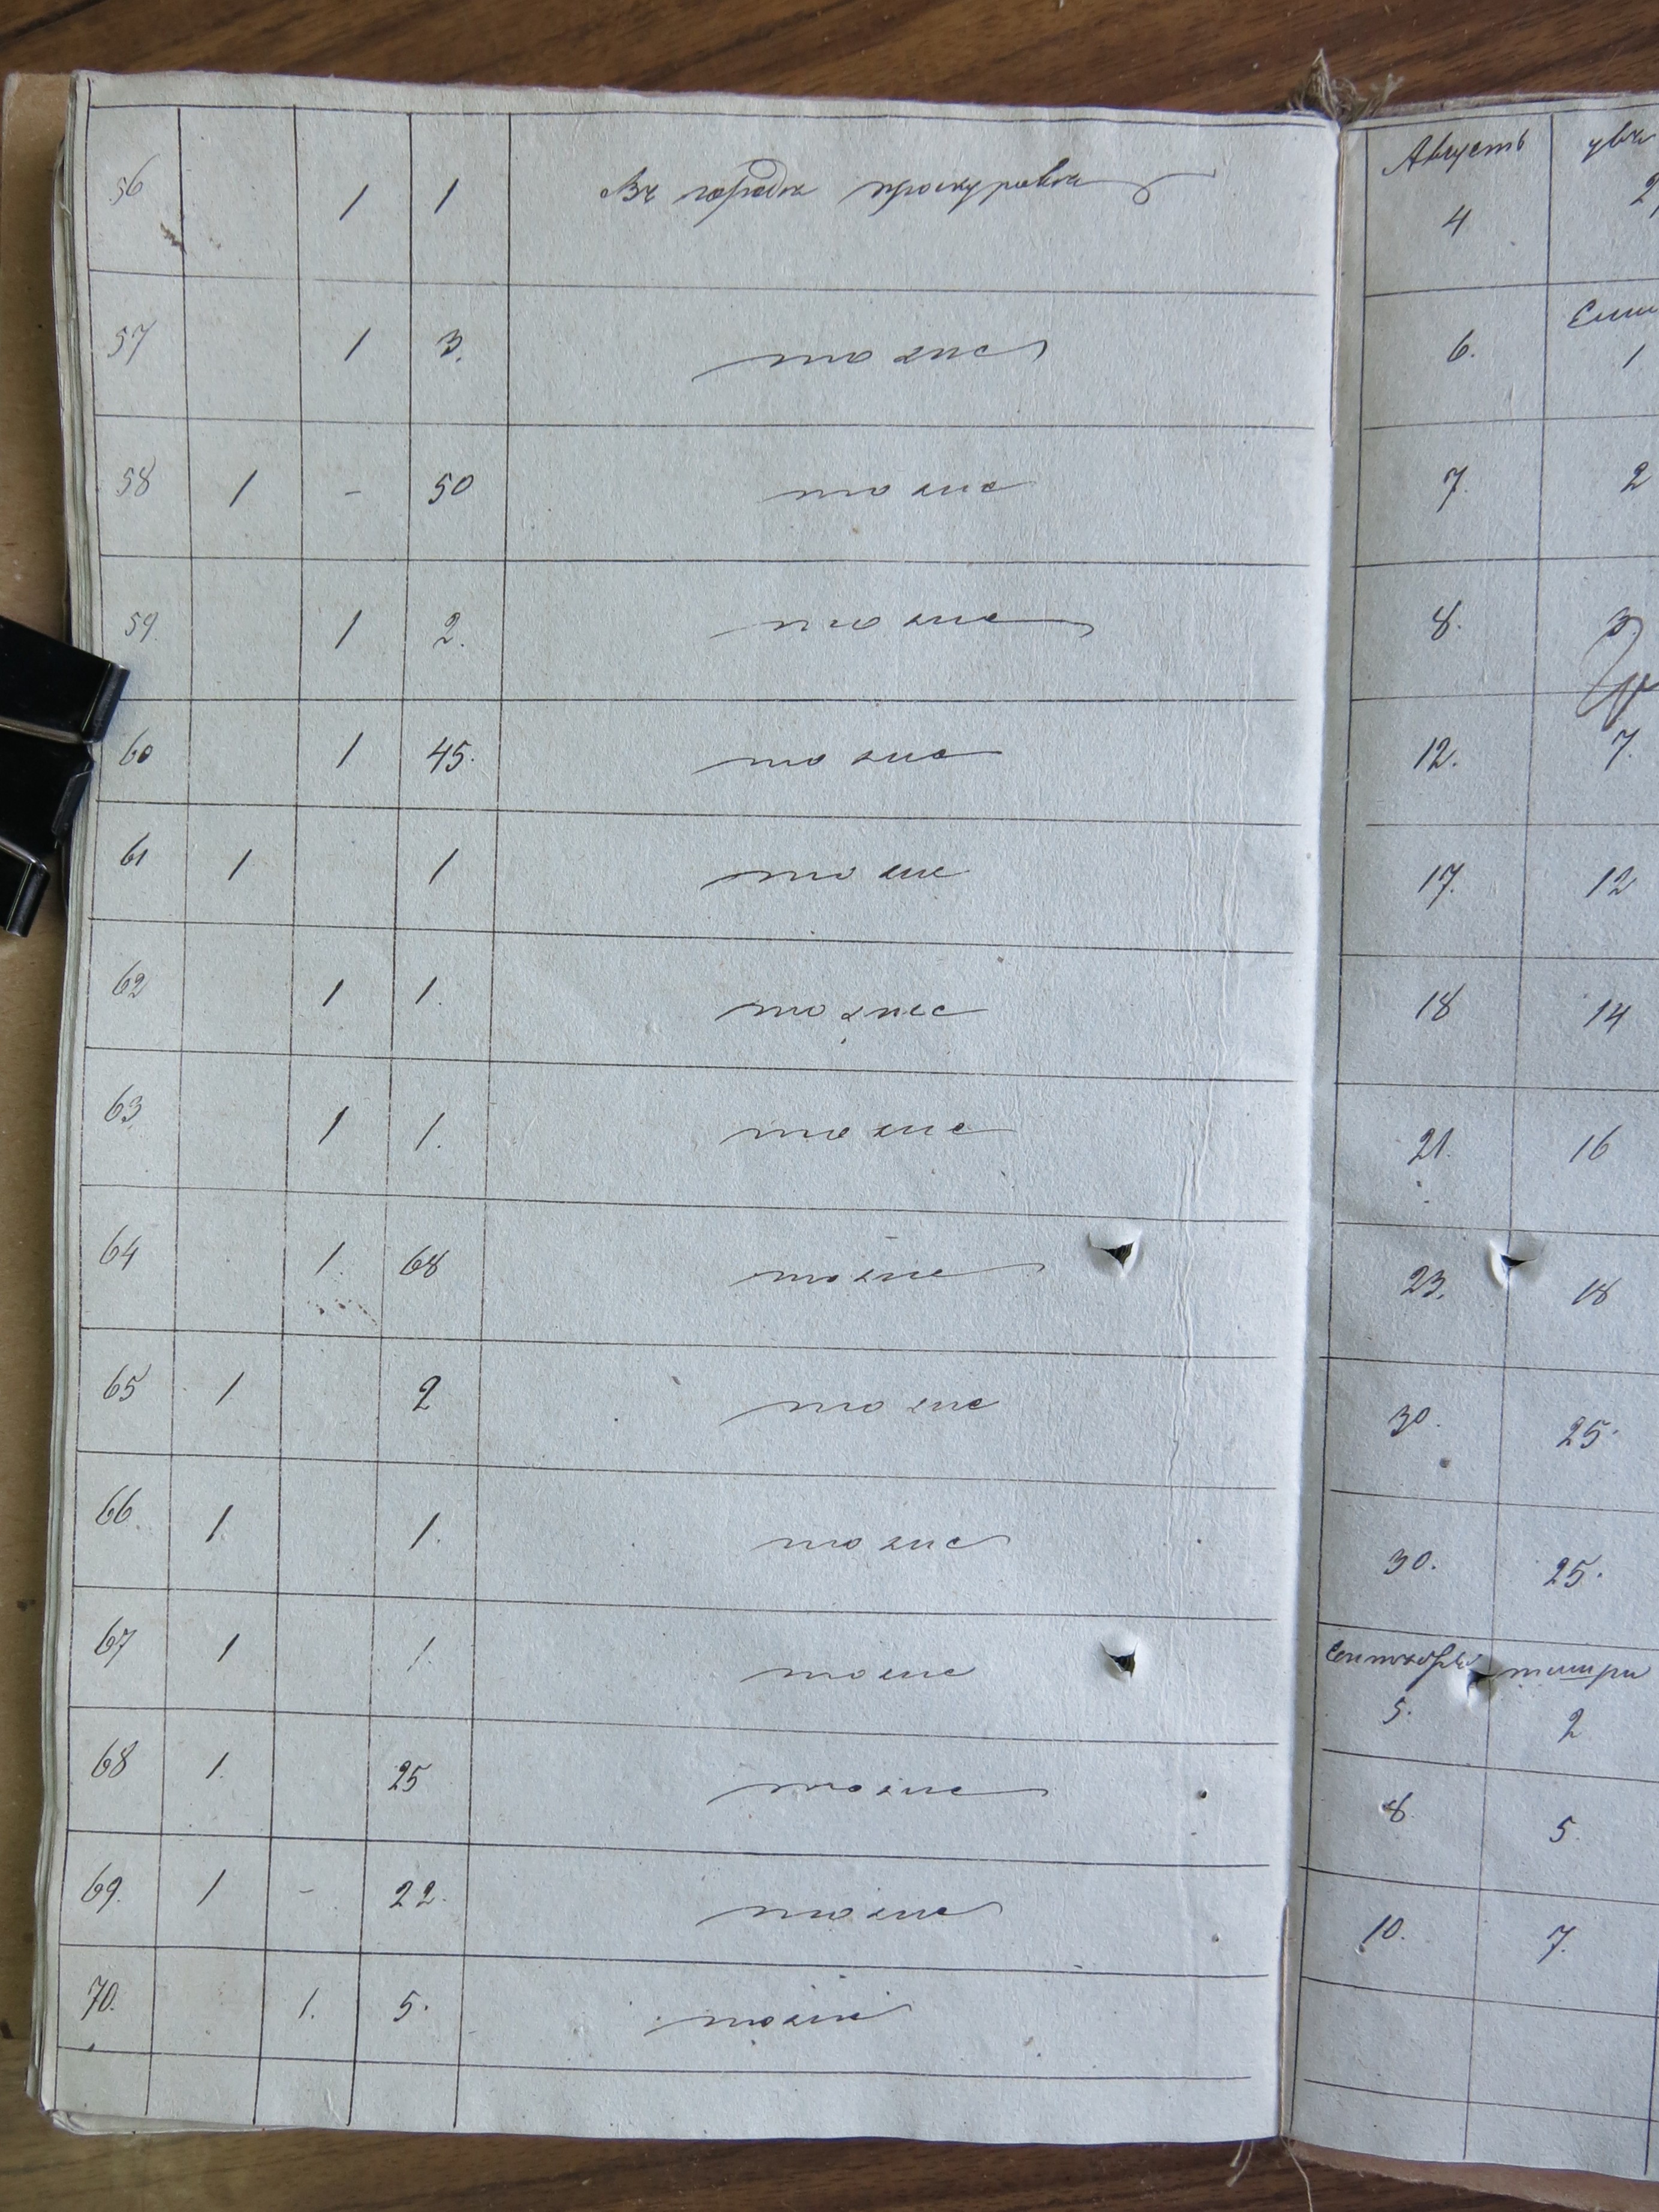 56 1 1 Въ городѣ Проскуровѣ Августъ
4 2
57 1 3. тоже 6. 1
58 1 - 50 тоже 7. 2
59. 1 2. тоже 8. 3
60 1 45. тоже 12. 7.
61 1 1 тоже 17. 12
62 1 1. тоже 18 14
63. 1 1. тоже 21. 16
64 1. 68 тоже 23. 18
65 1 2 тоже 30. 25.
66 1 1. тоже 30. 25.
67 1 1. тоже Сентября тишри
5. 2
68 1. 25 тоже 8. 5.
69. 1 - 22. тоже 10. 7.
70. 1. 5. тоже